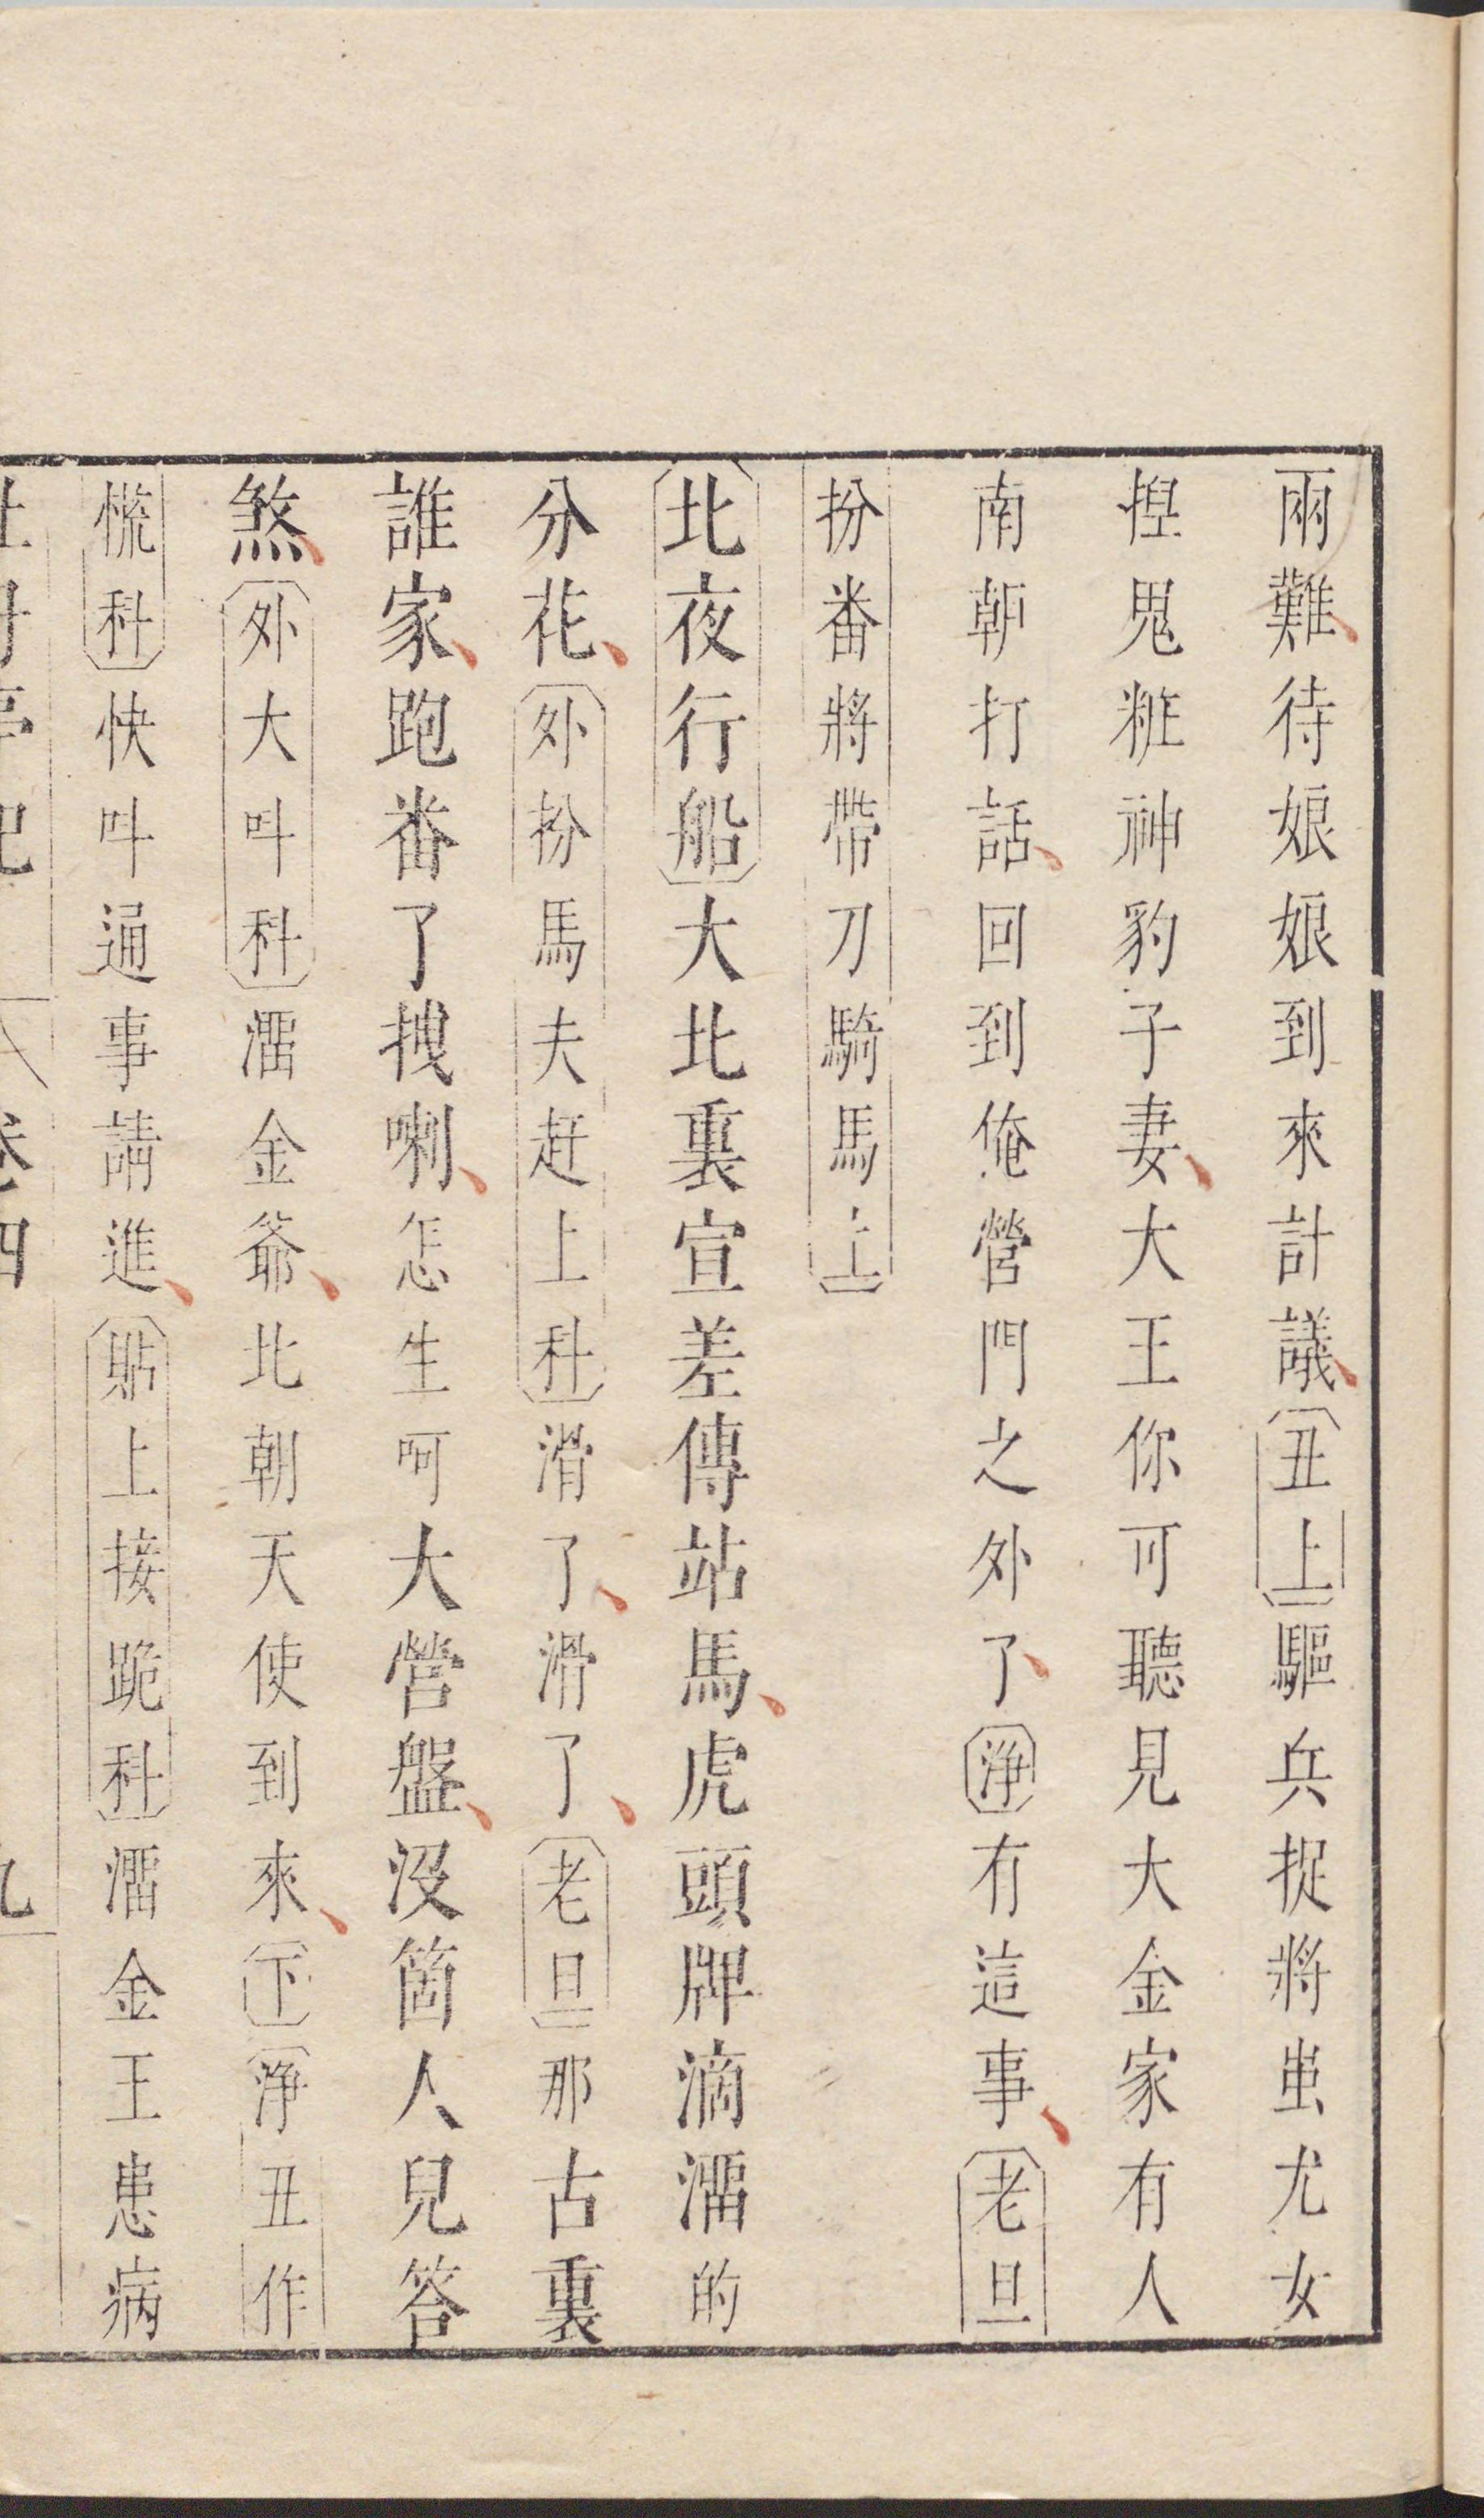 兩難待娘娘到來計議丑上驅兵捉將蚩尤女
揑鬼粧神豹子妻大王你可聽見大金家有人
南朝打話回到俺營門之外了淨有這事老旦
扮番將帶刀騎馬上
北夜行船大北裏宣差傳站馬虎頭牌滴溜的
分花外扮馬夫赶上科滑了滑了老旦那古裏
誰家跑番了拽喇怎生呵大營盤沒箇人兒答
煞外大呌科溜金爺北朝天使到來下淨丑作
慌科快呌通事請進貼上接跪科溜金王患病
牡丹亭記 卷四 九